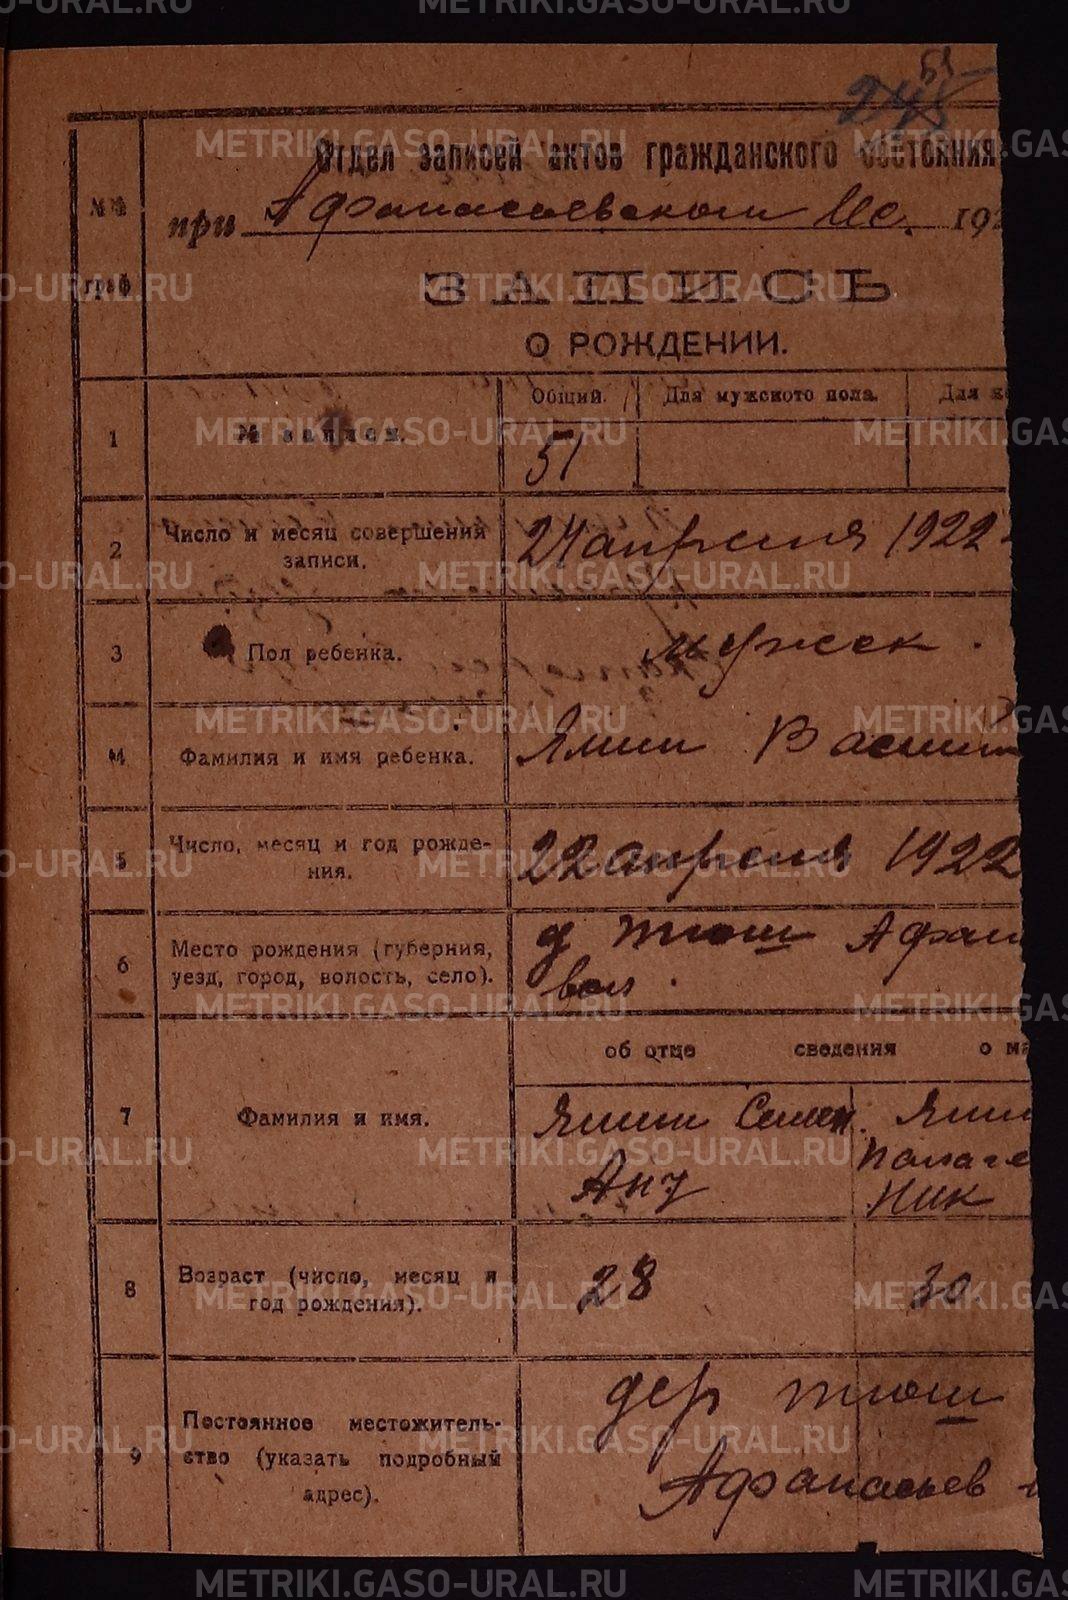 51
248
Отдел записей актов гражданского состояния
при Афанасьевском Ис. 192
№№ граф
ЗАПИСЬ
О РОЖДЕНИИ.
Общий. Для мужского пола. Для же
1 № записи. 51
2 Число и месяц совершения записи. 24 апреля 1922
3 Пол ребенка. мужск.
4 Фамилия и имя ребенка. Ямин Васили
5 Число, месяц и год рождения. 22 апреля 1922
6 Место рождения (губерния, уезд, город, волость, село). д тюш Афан
вол.
об отце сведения о ма
7 Фамилия и имя. Ямин Семен. Ямин
Анд Палаге
Ник
8 Возраст (число, месяц и год рождения). 28 30.
9 Постоянное местожительство (указать подробный адрес). дер тюш
Афанасьев
METRIKI.GASO-URAL.RU